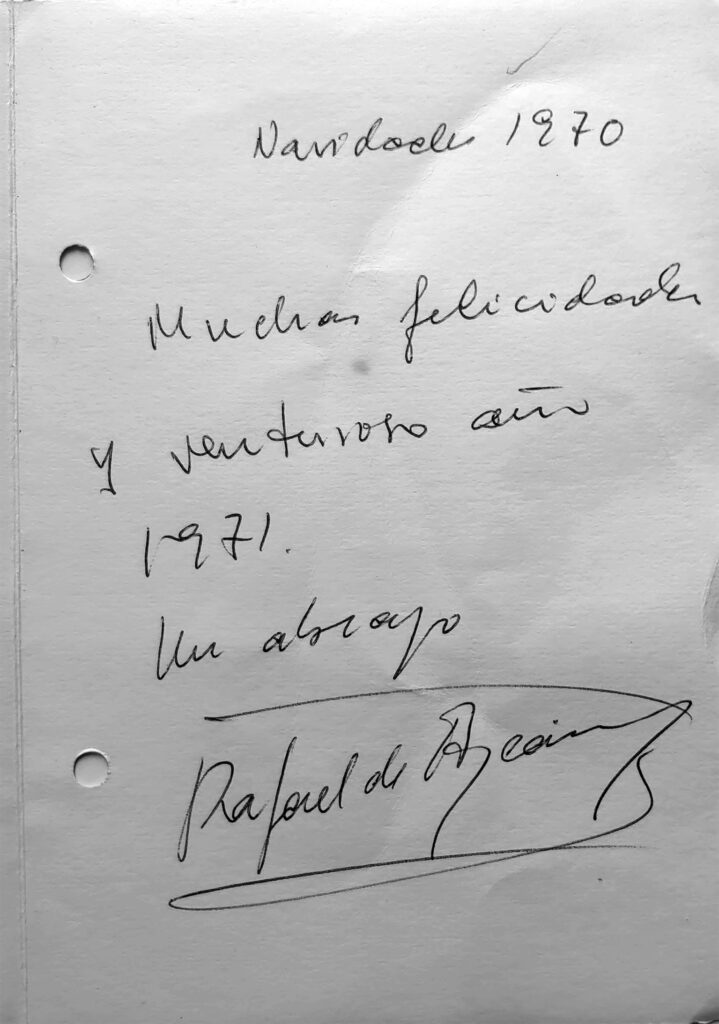 Navidades 1970
Muchas felicidades
y venturoso año
1971.
Un abrazo
Rafael de Azcárraga